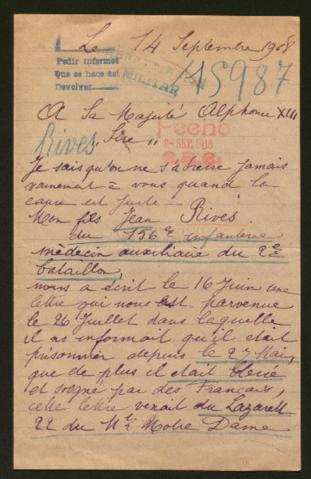 Le 14 Septembre 1918
Pedir informes
Que se hace est
Devolver
MILITAR
145987
A Sa Majesté Alphonse XIII
Rives
Sire,,
SEP. 1918
Je sais qu'on ne s'adresse jamais
vainement à vous quand la
cause est juste
Mon fils Jean Rives
du 156e infanterie
médecin auxiliaire du 2e
bataillon,
nous a écrit le 16 Juin une
lettre qui nous est parvenue
le 26 Juillet dans laquelle
il nous informait qu'il était
prisonnier depuis le 27 Mai,
que de plus il était blessé
et soigné par des Français,
cette lettre venait du Lazarett
22 du Notre Dame